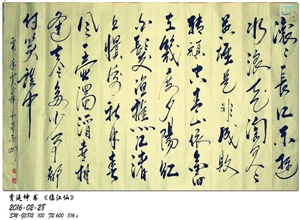 滚滚长江东逝
水浪花淘尽英
雄是非成败
转头空青山依旧
在几度夕阳红
白发渔樵江渚
上惯看秋月春
风一壶浊酒喜相
逢古今多少事都
付笑谈中
书 《临江仙》
2016-02-28